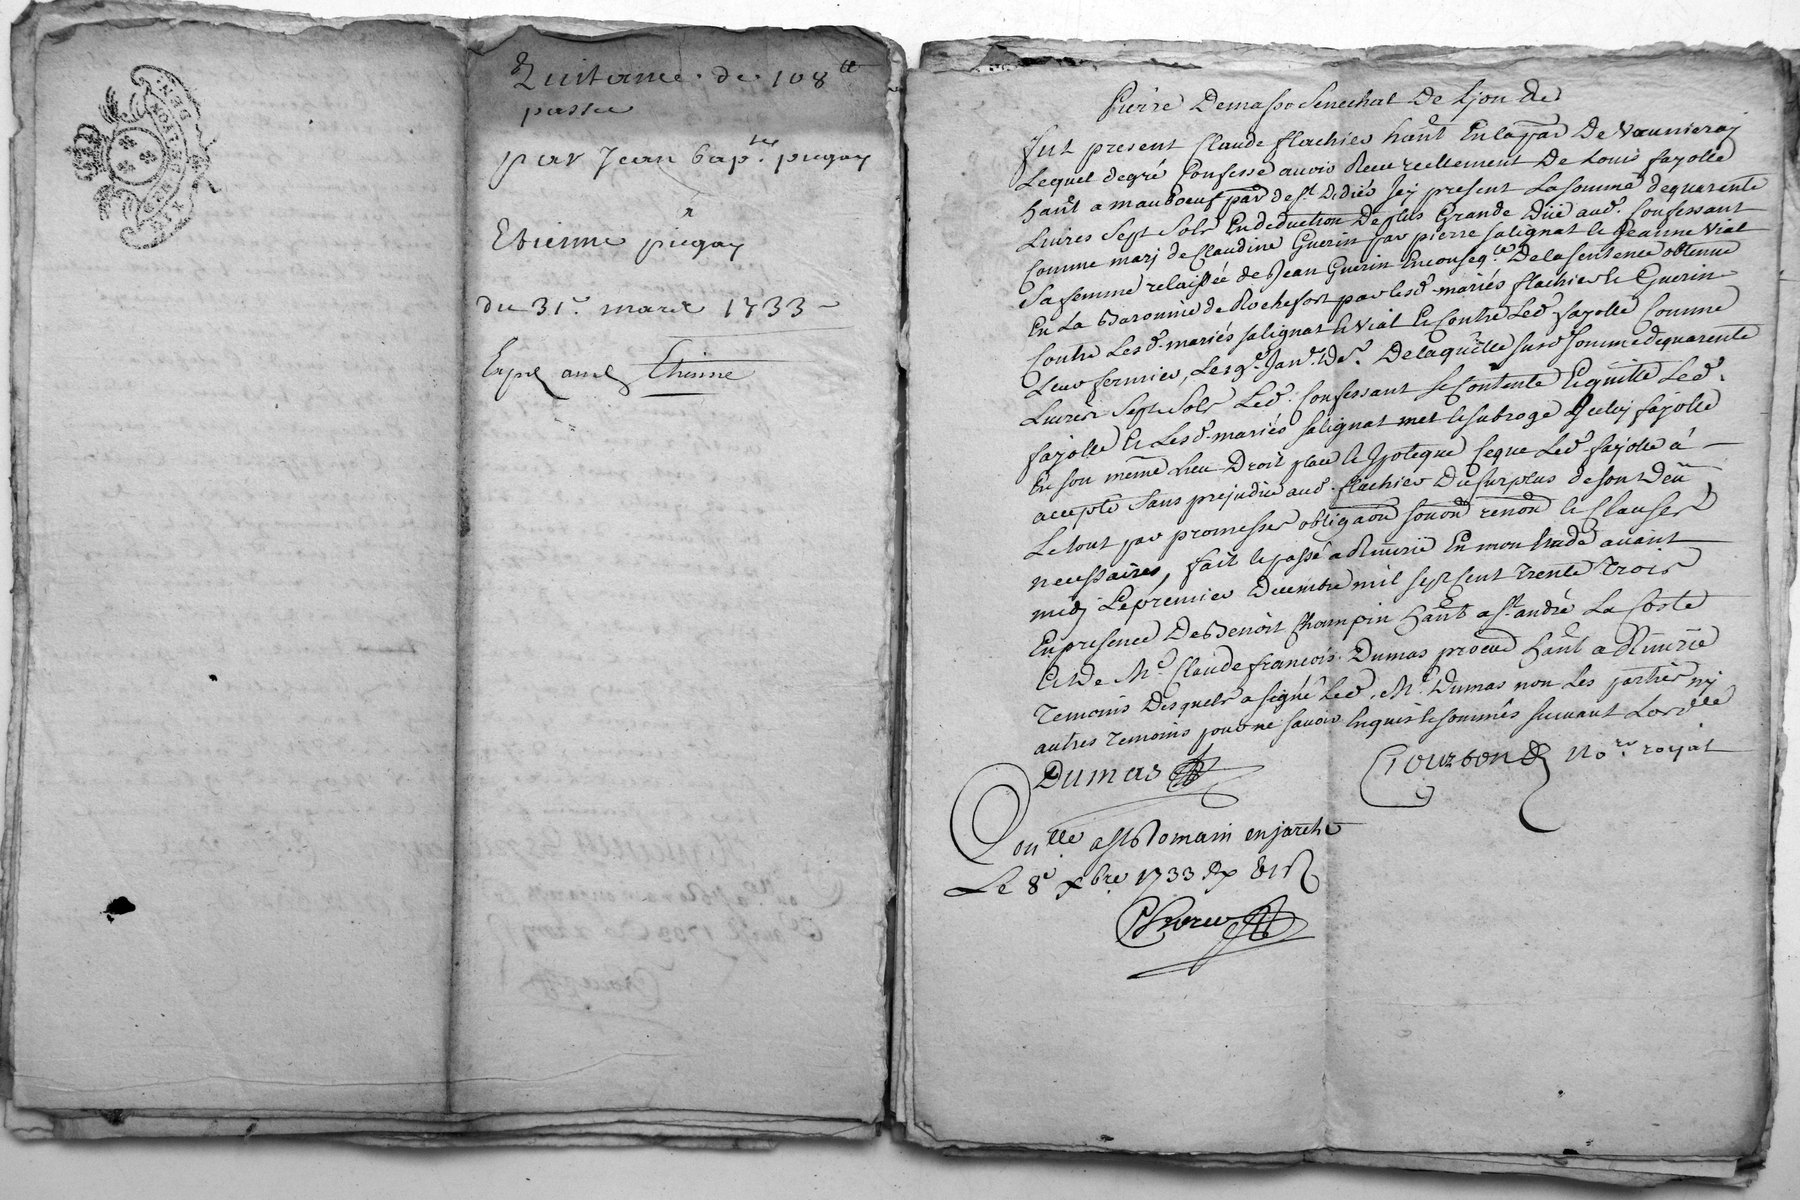 Quittance de 108 ll
passee
par Jean bap.te pugay
a
Etienne pugay
du 31.e mars 1733
Expé aud Etienne
Pierre Demasso Senechal De Lyon &c
fut present Claude flachier habt En la par De Vaunieray
Lequel degré Confesse avoir Receu reellement De Louis fayolle
habt a mauboeuf par de st Didier Jcy present La somme dequarente
Livres Sept Sols En deduction De plus Grande Düe aud. Confessant
Comme marj de Claudine Guerin par pierre salignat & Jeanne Vial
Sa femme relaissée de Jean Guerin En conseq.ce De la sentence obtenue
En La Baronnie de Rochefort par lesd. mariés flachier & Guerin
Contre Lesd. mariés salignat & Vial Et Contre Led fayolle Comme
Leur fermier, Le 19e Janer. Der. De laquelle susd somme dequarente
Livres Sept Sols Led. Confessant Se Contente Et quitte Led.
fayolle Et Lesd. mariés salignat met & subroge Jceluy fayolle
En son même Lieu Droit place & Jpoteque Ce que Led. fayolle á
accepté Sans prejudice aud. flachier Du surplus de son Deü
Le tout par promesses obligaon soumon renon & Clauses
necessaires, fait & passé a Riuirie En mon Etude avant
midj Le premier Decembre mil sept Cent Trente Trois
En presence De Benoit Champin habt a st andré La Coste
Et De Me. Claude francois Dumas procur habt a Riuirie
Temoins Desquels a signé Led. Me. Dumas non Les parties nj
autres Temoins pour ne savoir Enquis & sommés suivant Lord.ce
Dumas
Gourbon No.re royal
Con.lle a st Romain en jarest
Le 8e xbre 1733